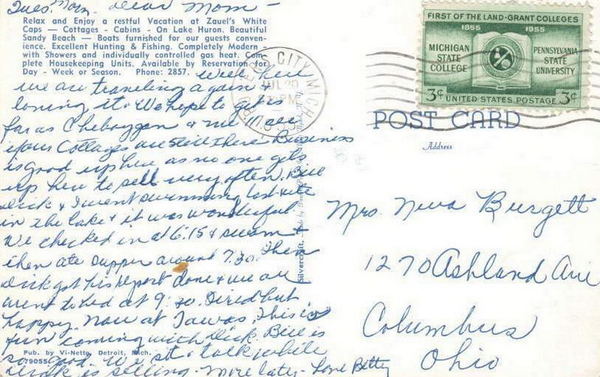 Tues. Morn. Dear Mom -
Relax and Enjoy a restful Vacation at Zauel's White
Caps — Cottages - Cabins - On Lake Huron. Beautiful
Sandy Beach — Boats furnished for our guests conven-
ience. Excellent Hunting & Fishing. Completely Modern -
with Showers and individually controlled gas heat. Com-
plete Housekeeping Units. Available by Reservation for
Day - Week or Season. Phone: 2857.
Well here
we are traveling again &
loving it. We hope to get as
far as Cheboygan & see
your Cottages are still there. Business
is good up here as no one gets
up here to sell very often. Bill
Dick & I went swimming last nite
in the lake & it was wonderful
We checked in at 6:15 & swam &
then ate supper around 7:30. Then
Dick got his report done & we all
went to bed at 9:30. Tired but
happy. Now at Tawas. This is
fun coming with Dick. Bill is
so good. We sit & talk while
Dick is selling. More later - Love Betty
Pub. by Vi-Netto, Detroit, Mich.
79055
CITY, MICH.
PM
FIRST OF THE LAND-GRANT COLLEGES
1855 1955
MICHIGAN STATE COLLEGE
PENNSYLVANIA STATE UNIVERSITY
3¢ UNITED STATES POSTAGE 3¢
POST CARD
Address
Mrs. Neva Burgett
1270 Ashland Ave
Columbus
Ohio